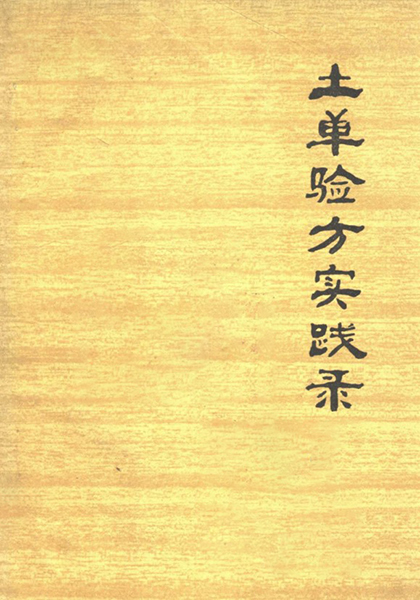 土单验方实践录